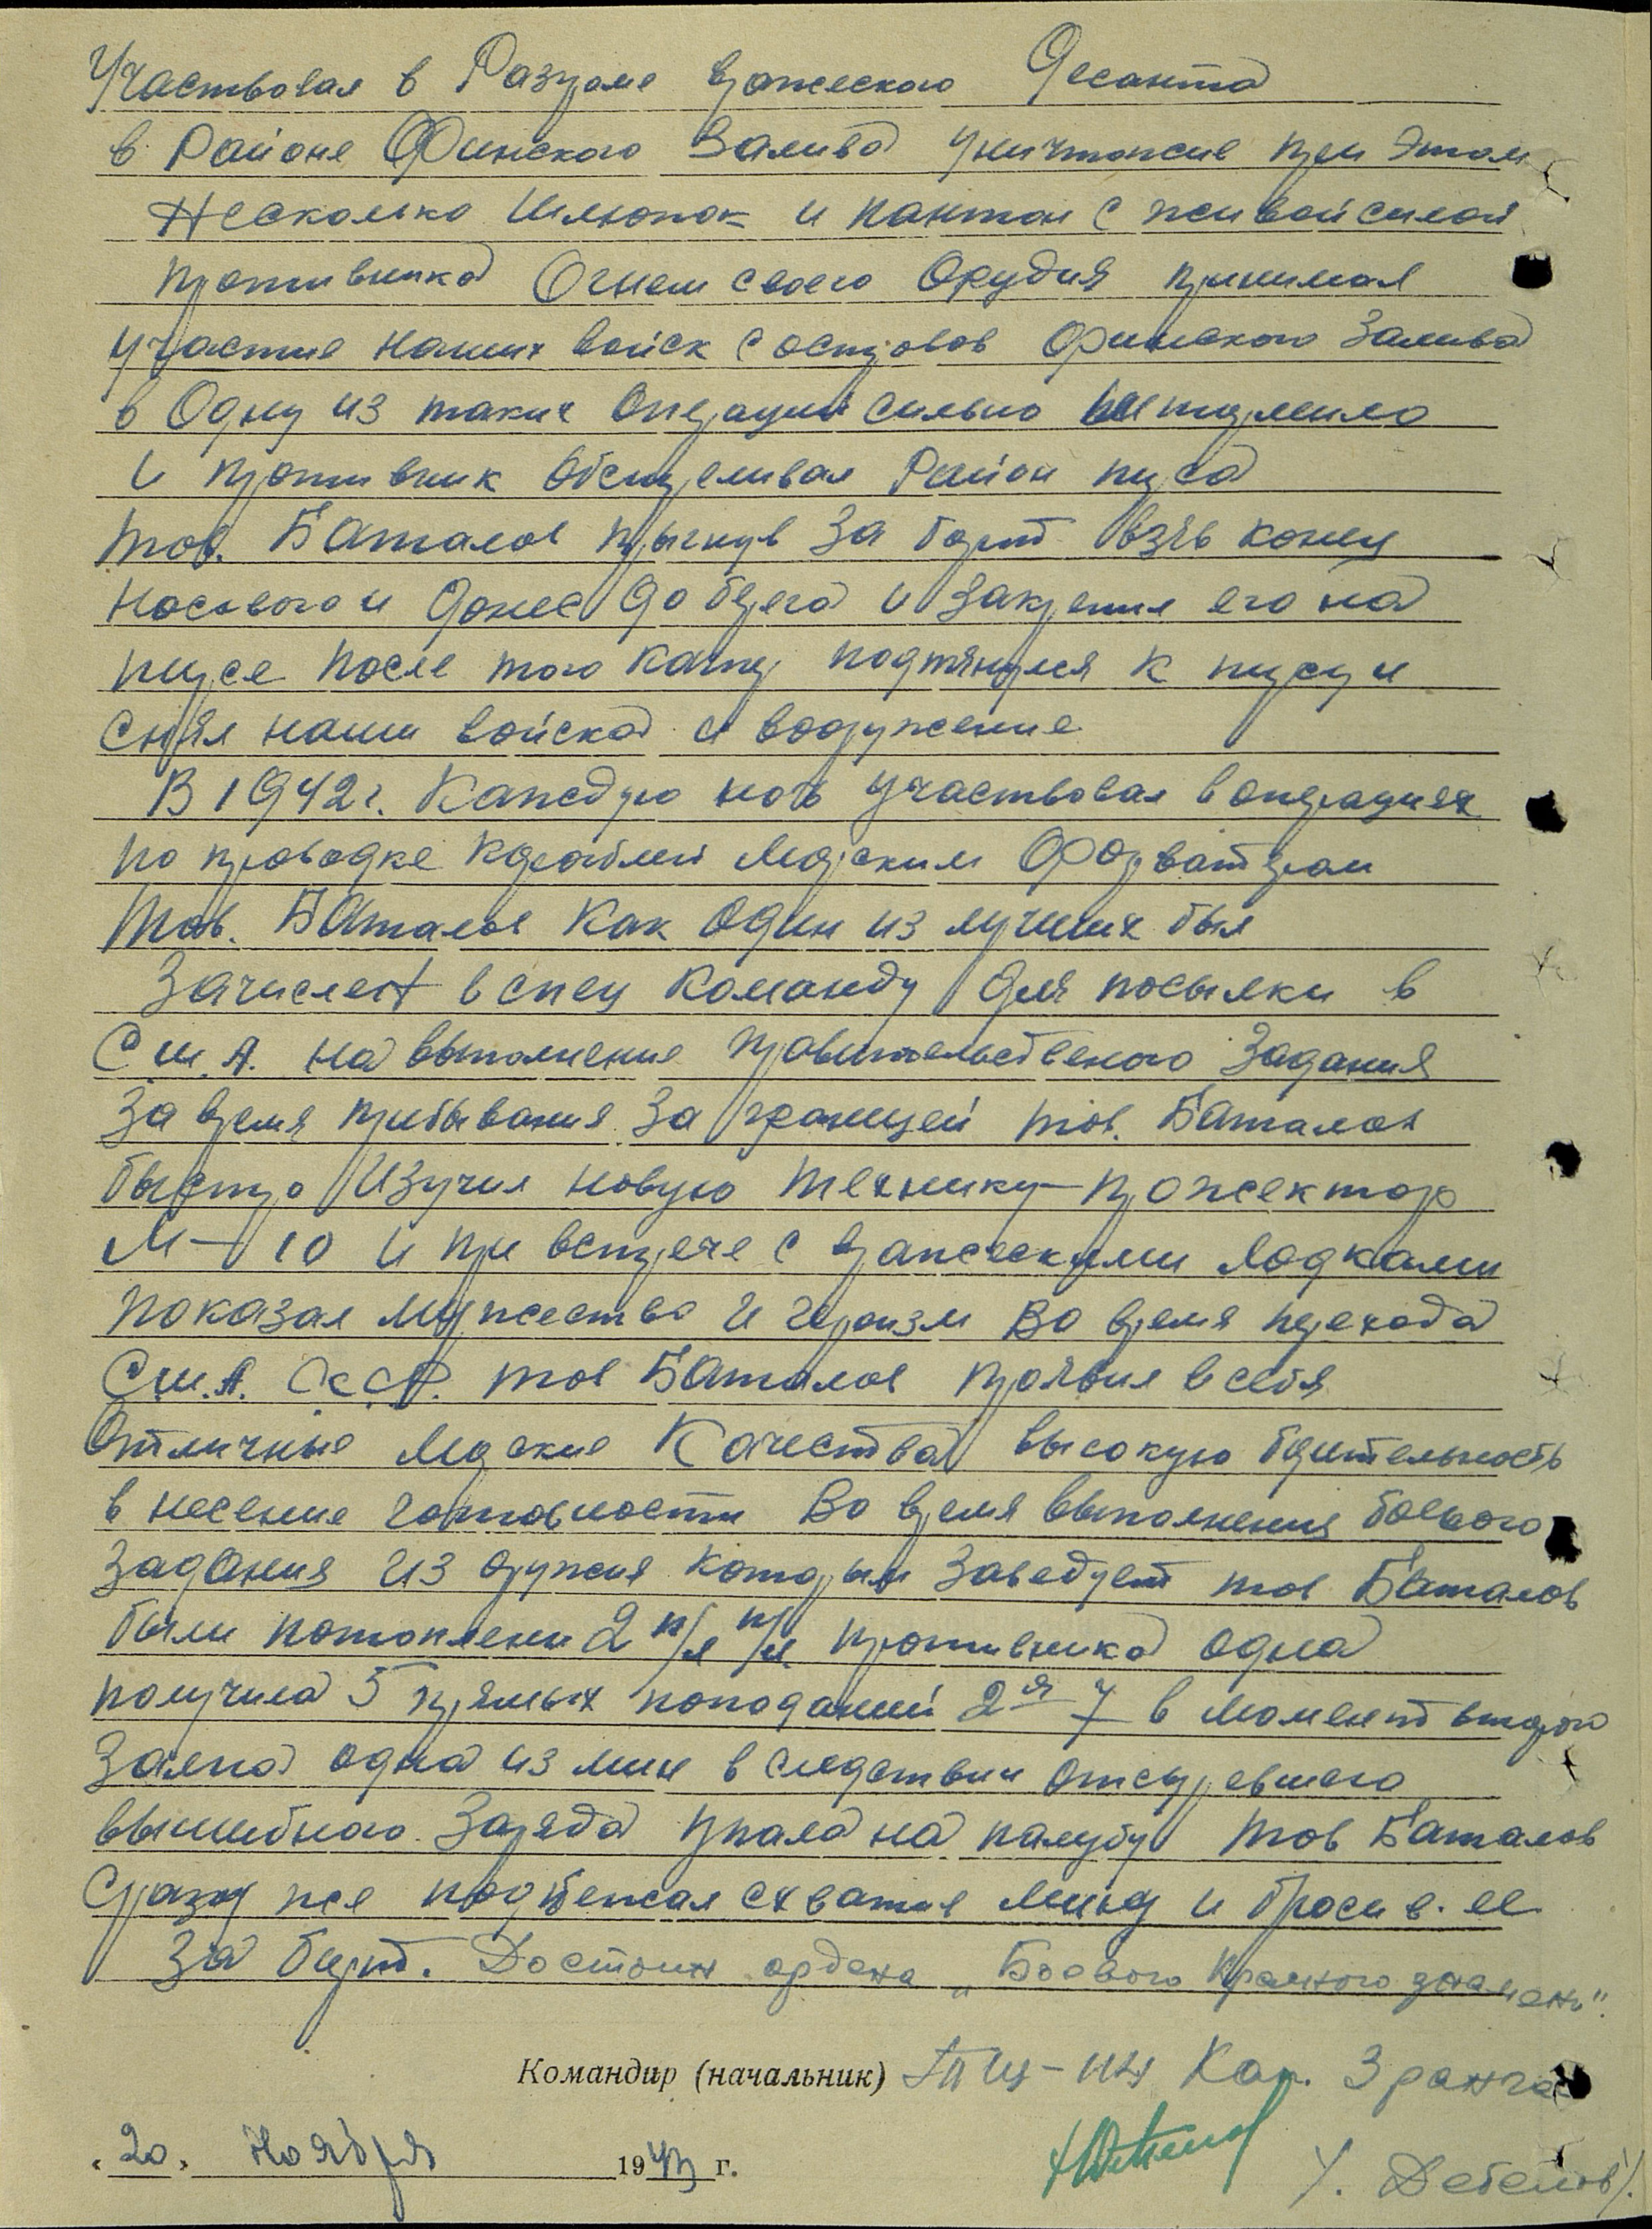 Участвовал в Разгроме вражеского Десанта
в Районе Финского Залива уничтожив при Этом
Несколько Шлюпок и понтон с живой силой
противника Огнем своего Орудия принимал
участие наших войск с островов Финского Залива
в Одну из таких Операций сильно штормило
и противник Обстреливал Район пирса
тов. Баталов прыгнув За борт взяв конец
носового и донес до берега и Закрепил его на
пирсе после того катер подтянулся к пирсу и
снял наши войска и вооружение
В 1942 г. Каждую ночь участвовал в операциях
по проводке Кораблей Морским Фарватером
Тов. Баталов Как один из лучших был
Зачислен в спец Команду для посылки в
С.Ш.А. на выполнение правительственого Задания
За время прибывания За границей тов. Баталов
быстро Изучил новую технику - прожектор
М-10 и при встрече с вражескими лодками
показал мужество и героизм Во время перехода
С.Ш.А. СССР. тов Баталов проявил в себя
Отличные Морские Качества высокую бдительность
в несение готовности Во время выполнения боевого
Задания из оружия которым Заведует тов Баталов
были потоплени 2 п/л п/л противника одна
получила 5 прямых поподаний 2я 7 в момент второго
Залпа одна из мин в следствии отсыревшего
вышибного Заряда упала на палубу тов Баталов
Сразу же подбежал схватив мину и бросив. ее
За борт. Достоин ордена „Боевого Красного знамени".
Командир (начальник) Кап. 3 ранга
"20" Ноября 1943 г.